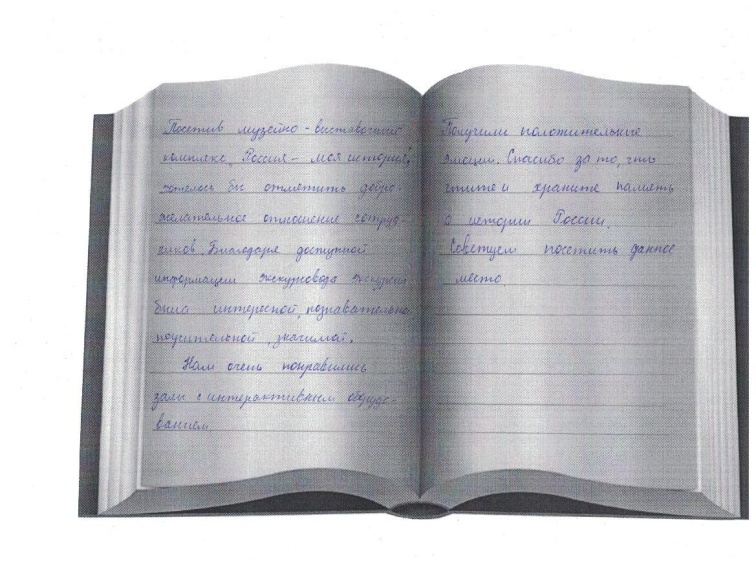 Посетив музейно-выставочный
комплекс „Россия – моя история",
хотелось бы отметить добро-
желательное отношение сотруд-
ников. Благодаря доступной
информации экскурсовода экскурсия
была интересной, познавательно
поучительной, значимой.
Нам очень понравились
залы с интерактивным оборудо-
ванием.
Получили положительные
эмоции. Спасибо за то, что
чтите и храните память
о истории России.
Советуем посетить данное
место.